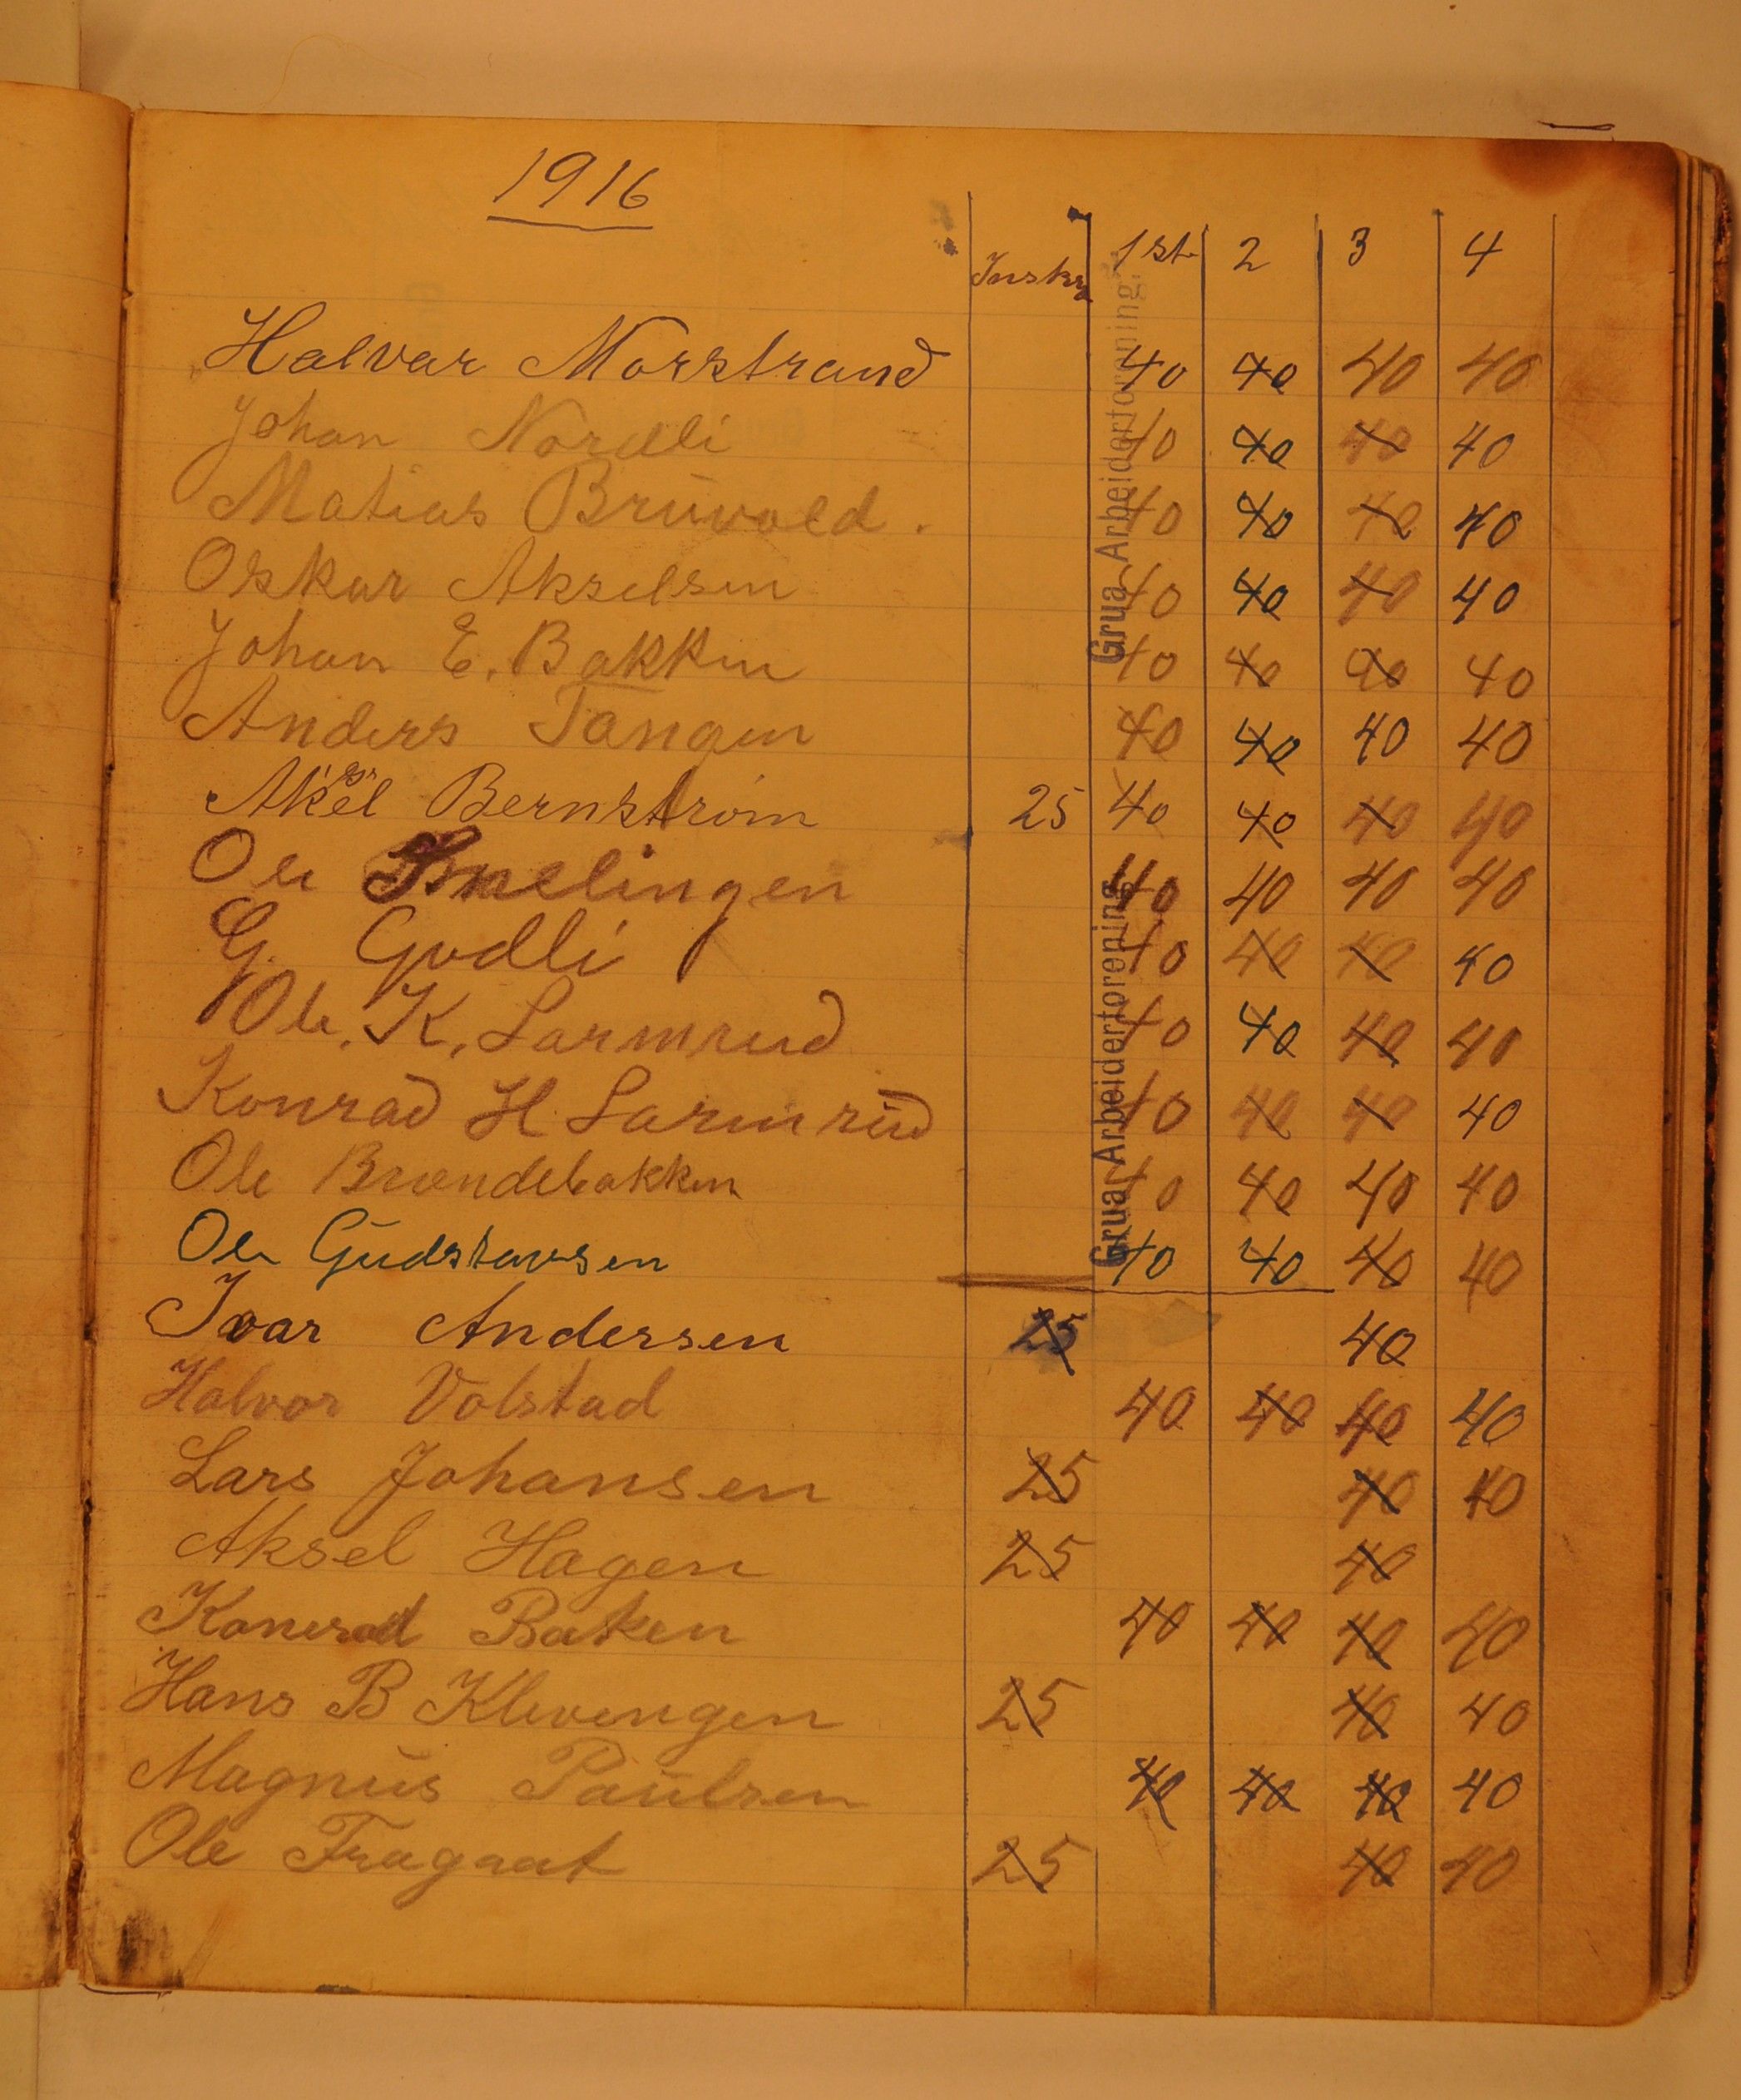 1916
Inskr 1st. 2 3 4
Halvar Morstrand 40 40 40 40
Johan Nordli 40 40 40 40
Matias Bruvold. 40 40 40 40
Oskar Akselsen 40 40 40 40
Johan E. Bakken 40 40 40 40
Anders Tangen 40 40 40 40
Aksel Bernstrøm 25 40 40 40 40
Ole Smelingen 40 40 40 40
G. Godli 40 40 40 40
Ole. K. Larmrud 40 40 40 40
Konrad H. Larmrud 40 40 40 40
Ole Brændebakken 40 40 40 40
Ole Gudstavsen 40 40 40 40
Ivar Andersen 25 40
Halvor Volstad 40 40 40 40
Lars Johansen 25 40 40
Aksel Hagen 25 40
Konrad Baken 40 40 40 40
Hans B Klevengen 25 40 40
Magnus Paulsen 40 40 40 40
Ole Fragaat 25 40 40
Grua Arbeiderforening.
Grua Arbeiderforening.